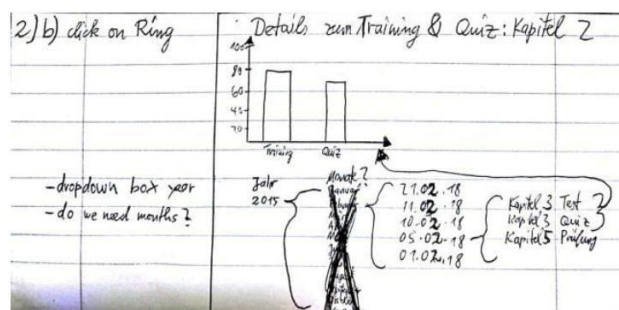 2) b) click on Ring
Details zum Training & Quiz: Kapitel 2
100
80
60
40
20
Training Quiz
- dropdown box year
- do we need months?
Jahr
2015
Monate?
Januar
21.02.18
11.02.18
10.02.18
05.02.18
01.02.18
Kapitel 3 Test 2
Kapitel 3 Quiz
Kapitel 5 Prüfung